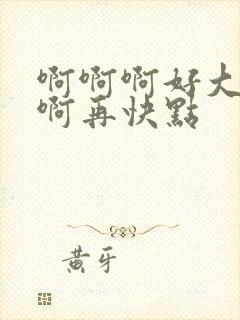 啊啊啊好大
啊再快點
黄牙